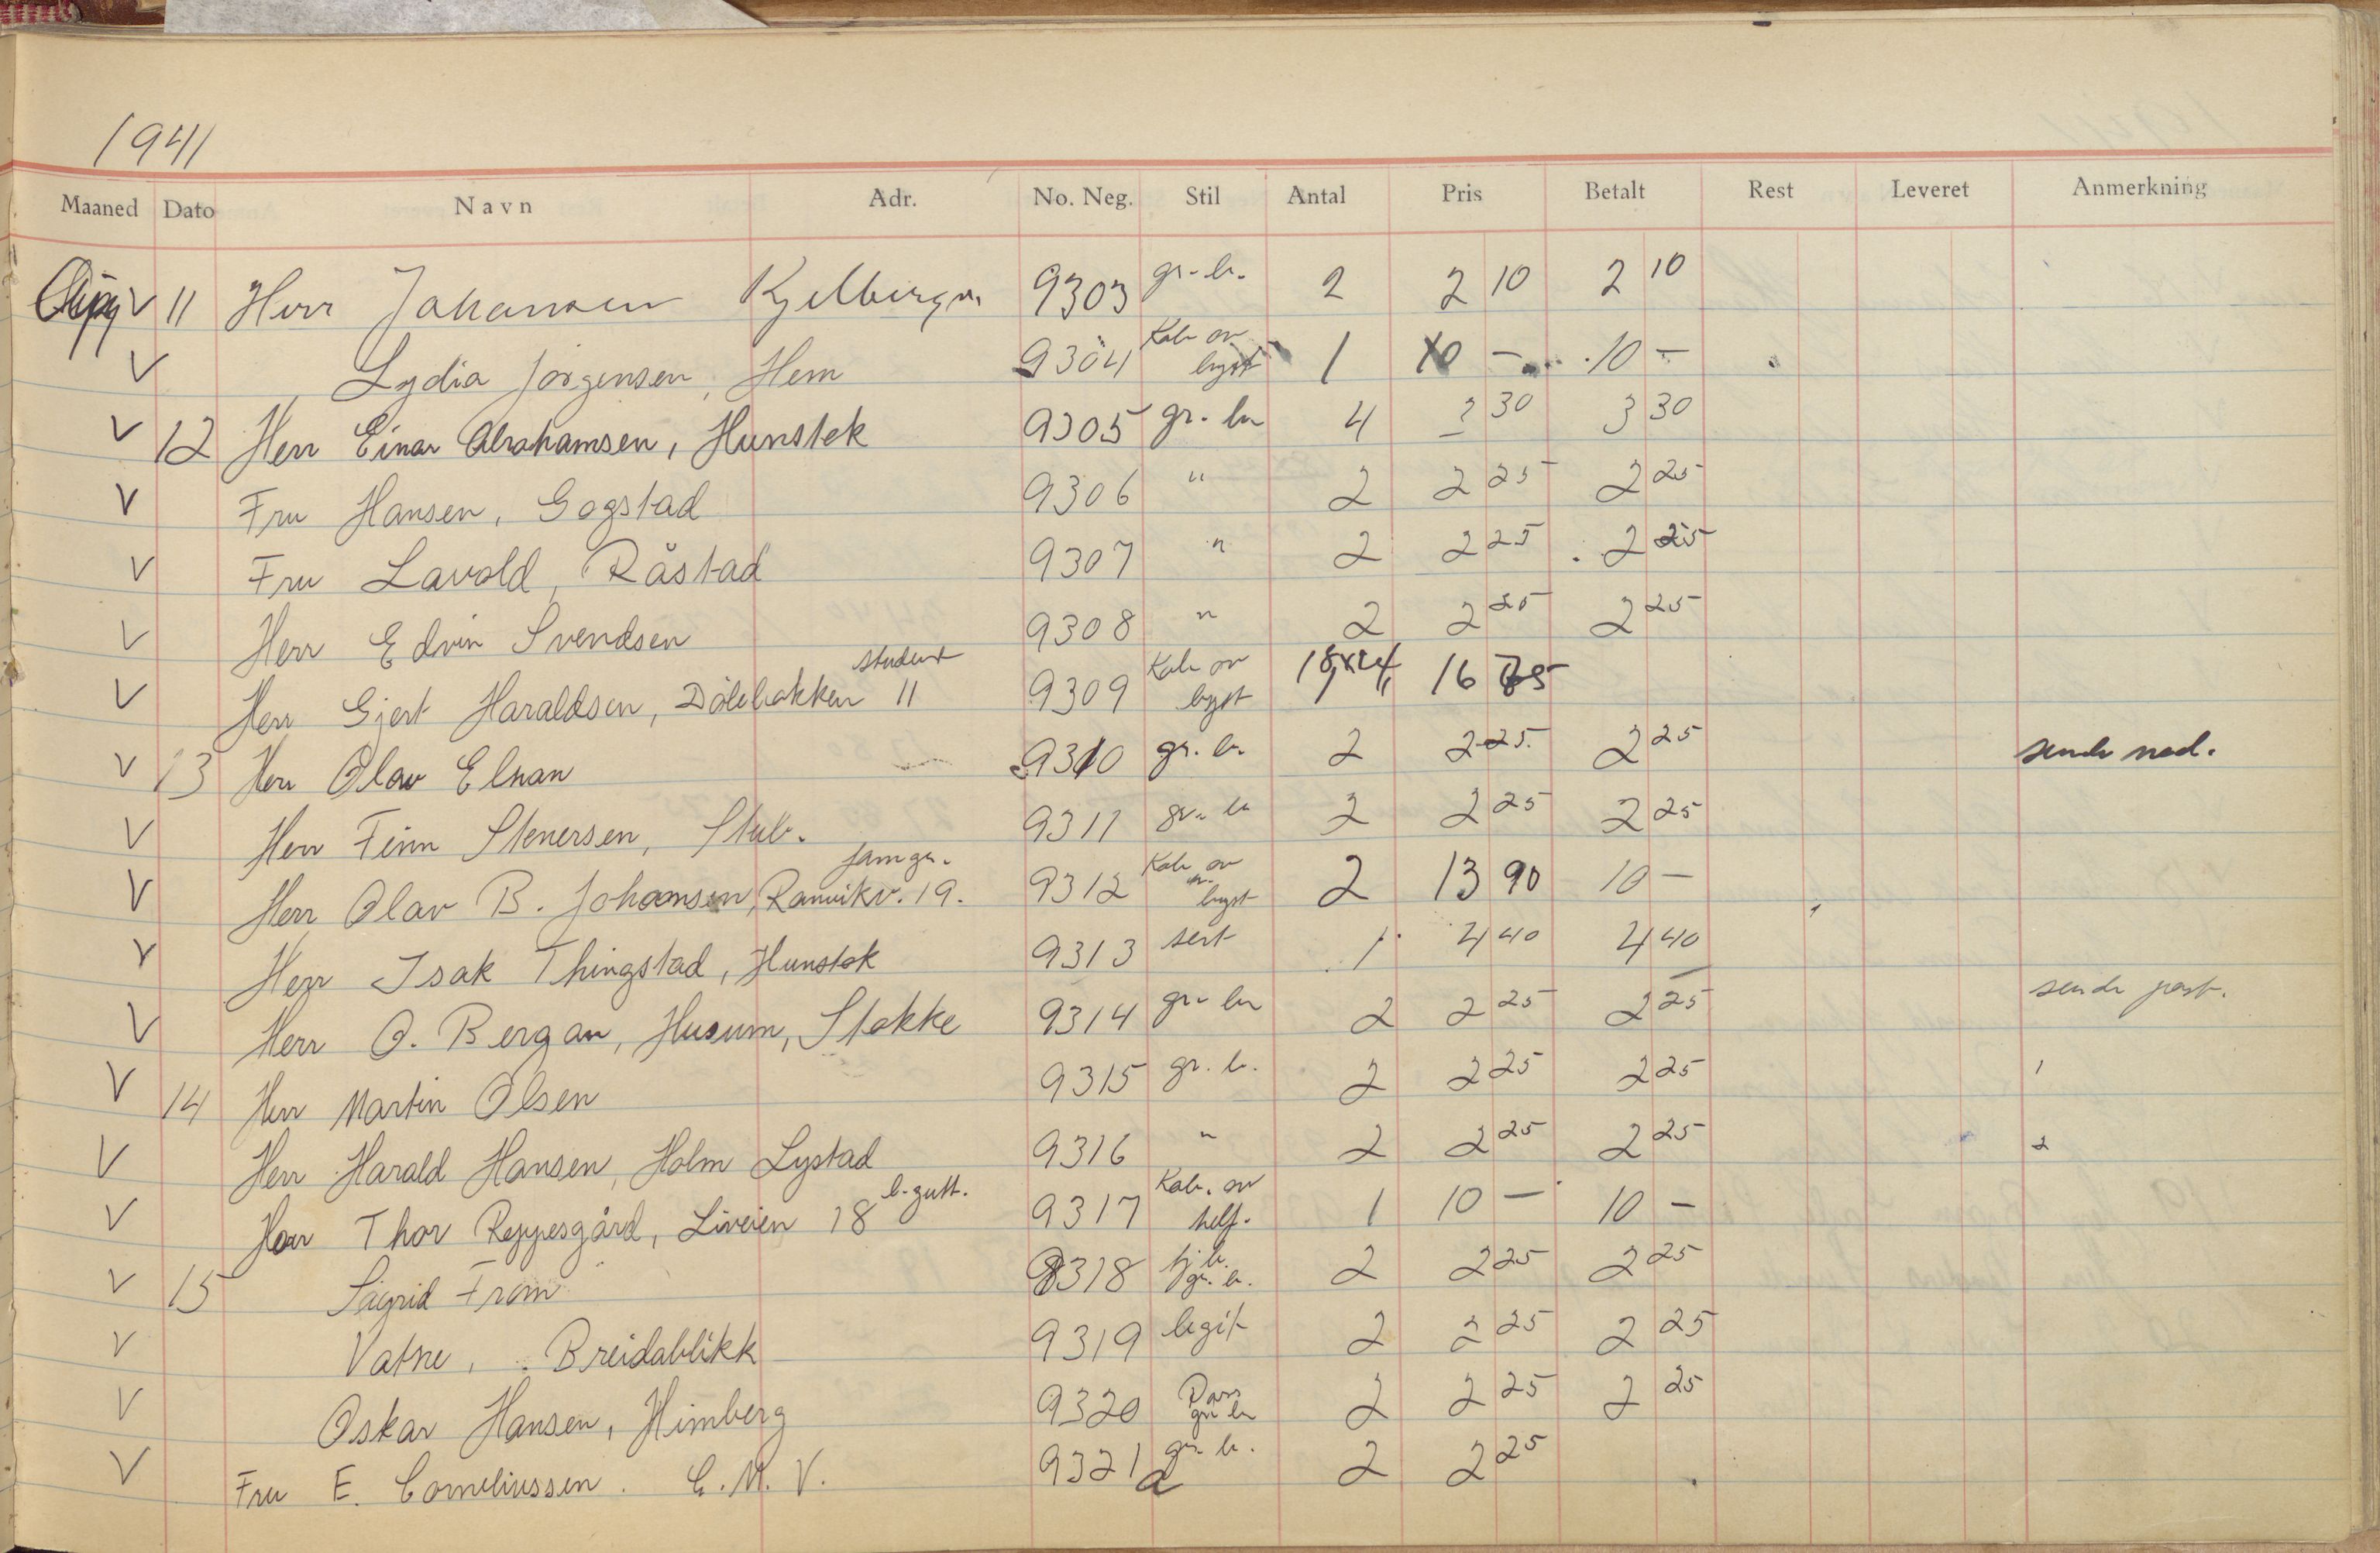 1941
Maaned Dato Navn Adr. No. Neg. Stil Antal Pris Betalt Rest Leveret Anmerkning
V 11 Herr Johansen Kjelbergv. 9303 gr-br. 2 2 10 2 10
V Lydia Jörgensen, Hem 9304 Kab av byst 1 10 - 10 -
V 12 Herr Einar Abrahamsen, Hunstok 9305 gr-br 4 3 30 3 30
V Fru Hansen, Gogstad 9306 " 2 2 25 2 25
V Fru Lavold, Råstad 9307 " 2 2 25 2 25
V Herr Edvin Svendsen 9308 " 2 2 25 2 25
student
V Herr Gjert Haraldsen, Dölebakken 11 9309 Kab av byst 16
V 13 Herr Olav Elnan 9310 gr. br. 2 2 25 2 25 sende
V Herr Finn Stenersen, Stub. 9311 gr. br 2 2 25 2 25
V Herr Olav B. Johansen, Ranvikv. 19. 9312 Kab av byst 2 13 90 10 -
V Herr Isak Thingstad, Hunstok 9313 1 4 40 4 40
V Herr O. Bergan, Husum, Stokke 9314 gr-br 2 2 25 2 25 sende post.
V 14 Herr Martin Olsen 9315 gr. br. 2 2 25 2 25 1
V Herr Harald Hansen, Holm Lystad 9316 " 2 2 25 2 25 2
V Herr Thor Reppesgård, Liveien 18 9317 Kab. av 1 10 - 10 -
V 15 Sigrid From 9318 gr. br. 2 2 25 2 25
V Vatne, Breidablikk 9319 legit 2 2 25 2 25
V Oskar Hansen, Himberg 9320 Pass gr br 2 2 25 2 25
V Fru E. Corneliussen. C.M.V. 9321 a gr. br. 2 2 25